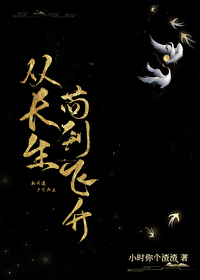 从长生
苟到飞升
小时你个渣渣 著